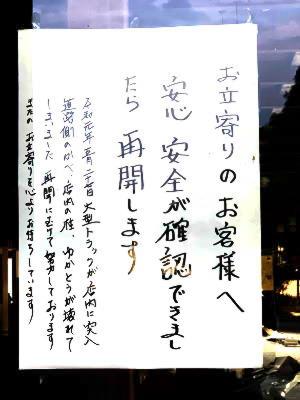 お立寄りのお客様へ
安心 安全が確認できまし
たら 再開します
令和元年五月二十一日大型トラックが店内に突入
道路側のかべ、店内の柱、ゆかとうが壊れて
しまいました 再開にむて努力しております
またの お立寄りを心よりお待ちしています